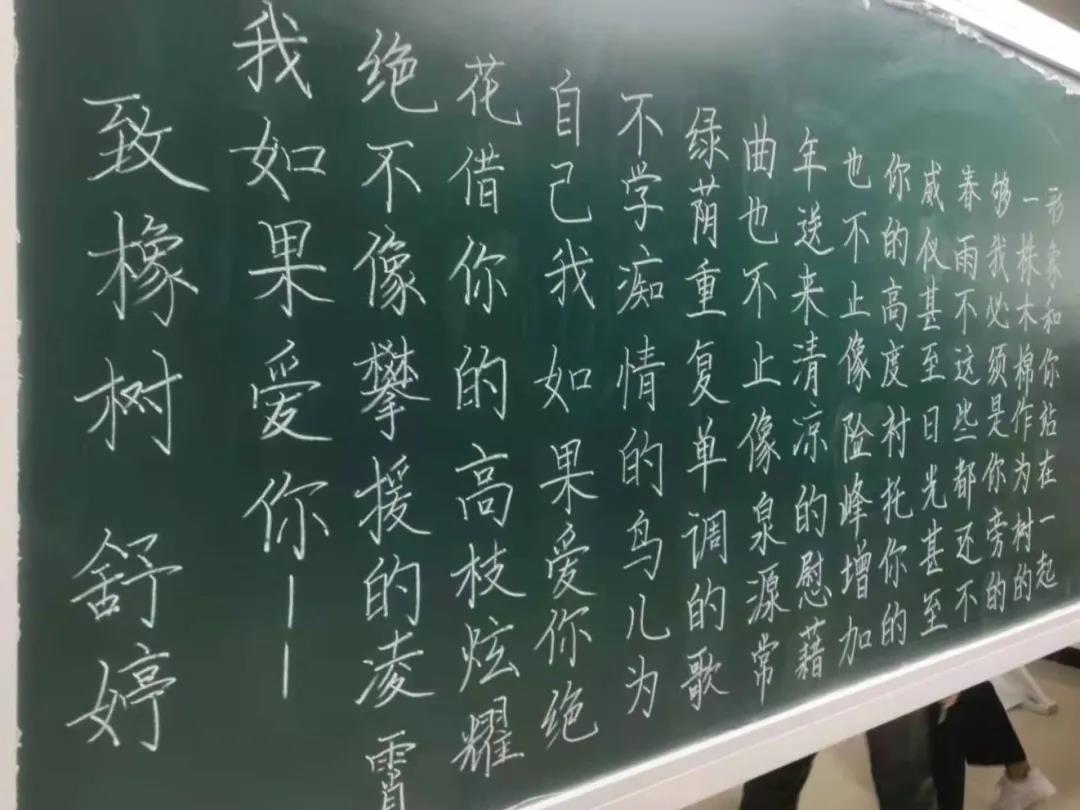 致橡树 舒婷
我如果爱你——
绝不像攀援的凌霄
花借你的高枝炫耀
自己我如果爱你绝
不学痴情的鸟儿为
绿荫重复单调的歌
曲也不止像泉源常
年送来清凉的慰藉
也不止像险峰增加
你的高度衬托你的
威仪甚至日光甚至
春雨不这些都还不
够我必须是你旁的
一株木棉作为树的
形象和你站在一起